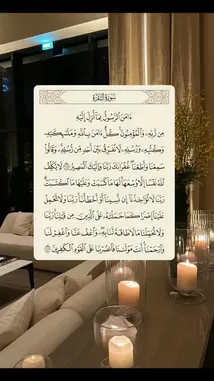 سُورَةُ البَقَرَةِ
ءَامَنَ ٱلرَّسُولُ بِمَآ أُنزِلَ إِلَيْهِ
مِن رَّبِّهِۦ وَٱلْمُؤْمِنُونَ كُلٌّ ءَامَنَ بِٱللَّهِ وَمَلَٰٓئِكَتِهِۦ
وَكُتُبِهِۦ وَرُسُلِهِۦ لَا نُفَرِّقُ بَيْنَ أَحَدٍ مِّن رُّسُلِهِۦ وَقَالُوا۟
سَمِعْنَا وَأَطَعْنَا غُفْرَانَكَ رَبَّنَا وَإِلَيْكَ ٱلْمَصِيرُ ۝ لَا يُكَلِّفُ
ٱللَّهُ نَفْسًا إِلَّا وُسْعَهَا لَهَا مَا كَسَبَتْ وَعَلَيْهَا مَا ٱكْتَسَبَتْ
رَبَّنَا لَا تُؤَاخِذْنَآ إِن نَّسِينَآ أَوْ أَخْطَأْنَا رَبَّنَا وَلَا تَحْمِلْ
عَلَيْنَآ إِصْرًا كَمَا حَمَلْتَهُۥ عَلَى ٱلَّذِينَ مِن قَبْلِنَا رَبَّنَا
وَلَا تُحَمِّلْنَا مَا لَا طَاقَةَ لَنَا بِهِۦ وَٱعْفُ عَنَّا وَٱغْفِرْ لَنَا
وَٱرْحَمْنَآ أَنتَ مَوْلَىٰنَا فَٱنصُرْنَا عَلَى ٱلْقَوْمِ ٱلْكَٰفِرِينَ ۝